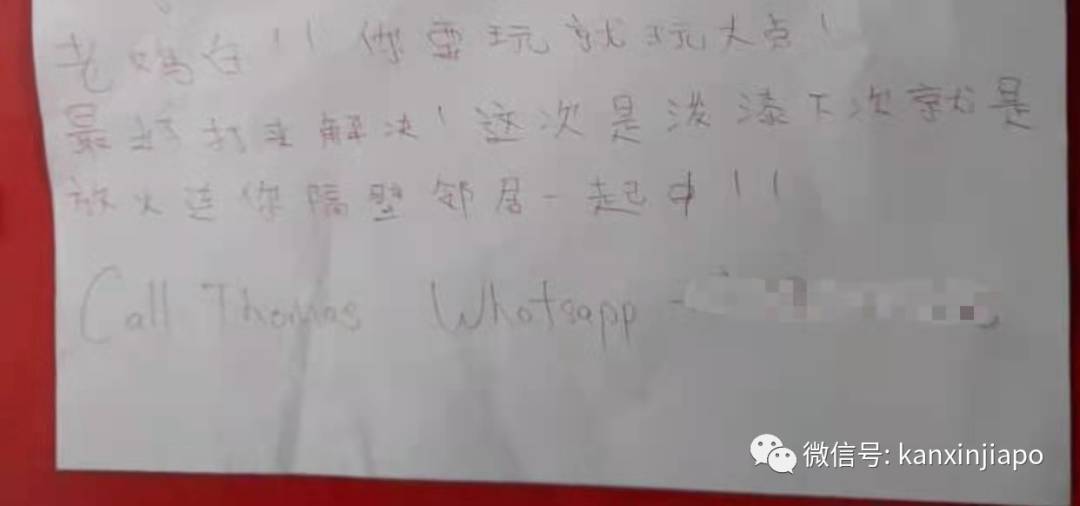 老鸡白!! 你要玩就玩大点!
最好打来解决!这次是泼漆下次就是
放火连你隔壁邻居一起中!!
Call Thomas Whatsapp -
微信号: kanxinjiapo